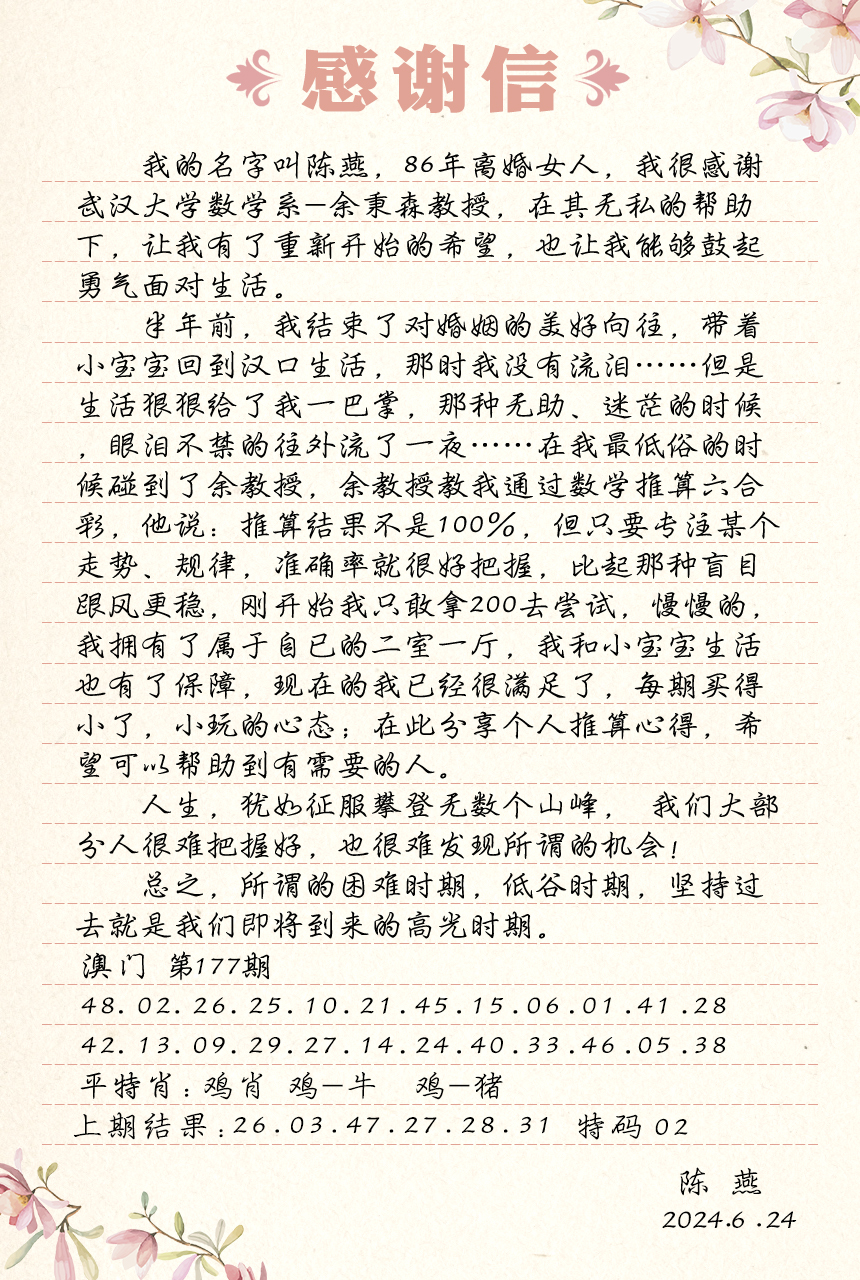 感谢信
我的名字叫陈燕，86年离婚女人，我很感谢
武汉大学数学系—余秉森教授，在其无私的帮助
下，让我有了重新开始的希望，也让我能够鼓起
勇气面对生活。
半年前，我结束了对婚姻的美好向往，带着
小宝宝回到汉口生活，那时我没有流泪……但是
生活狠狠给了我一巴掌，那种无助、迷茫的时候
，眼泪不禁的往外流了一夜……在我最低俗的时
候碰到了余教授，余教授教我通过数学推算六合
彩，他说：推算结果不是100%，但只要专注某个
走势、规律，准确率就很好把握，比起那种盲目
跟风更稳，刚开始我只敢拿200去尝试，慢慢的，
我拥有了属于自已的二室一厅，我和小宝宝生活
也有了保障，现在的我已经很满足了，每期买得
小了，小玩的心态；在此分享个人推算心得，希
望可以帮助到有需要的人。
人生，犹如征服攀登无数个山峰， 我们大部
分人很难把握好，也很难发现所谓的机会！
总之，所谓的困难时期，低谷时期，坚持过
去就是我们即将到来的高光时期。
澳门 第177期
48.02.26.25.10.21.45.15.06.01.41.28
42.13.09.29.27.14.24.40.33.46.05.38
平特肖：鸡肖 鸡—牛 鸡—猪
上期结果：26.03.47.27.28.31 特码 02
陈 燕
2024.6.24